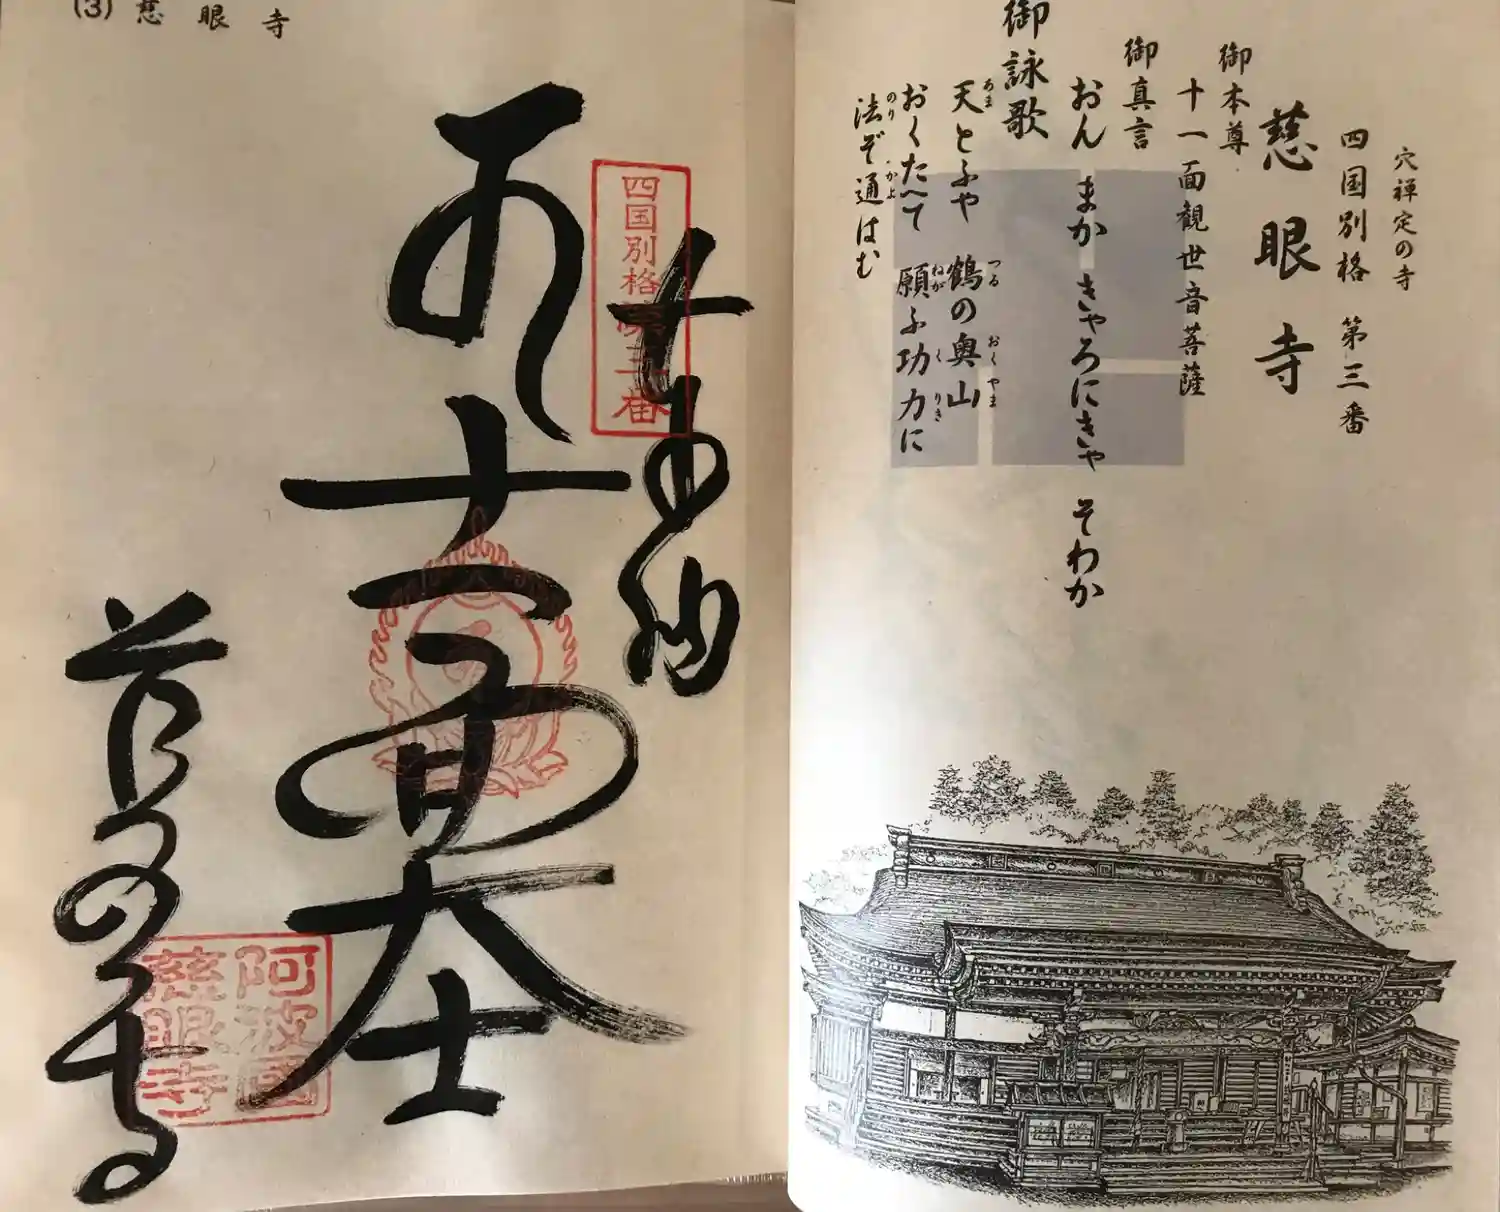 穴禅定の寺
四国別格 第三番
慈眼寺
御本尊
十一面観世音菩薩
御真言
おん まか きゃろにきゃ そわか
御詠歌
天とふや 鶴の奥山
あま つる おく やま
おくたへて 願ふ功力に
ねが く りき
法ぞ通はむ
のり かよ
(3) 慈眼寺
四国別格第三番
奉納
十一面大士
慈眼寺
阿波国
慈眼寺